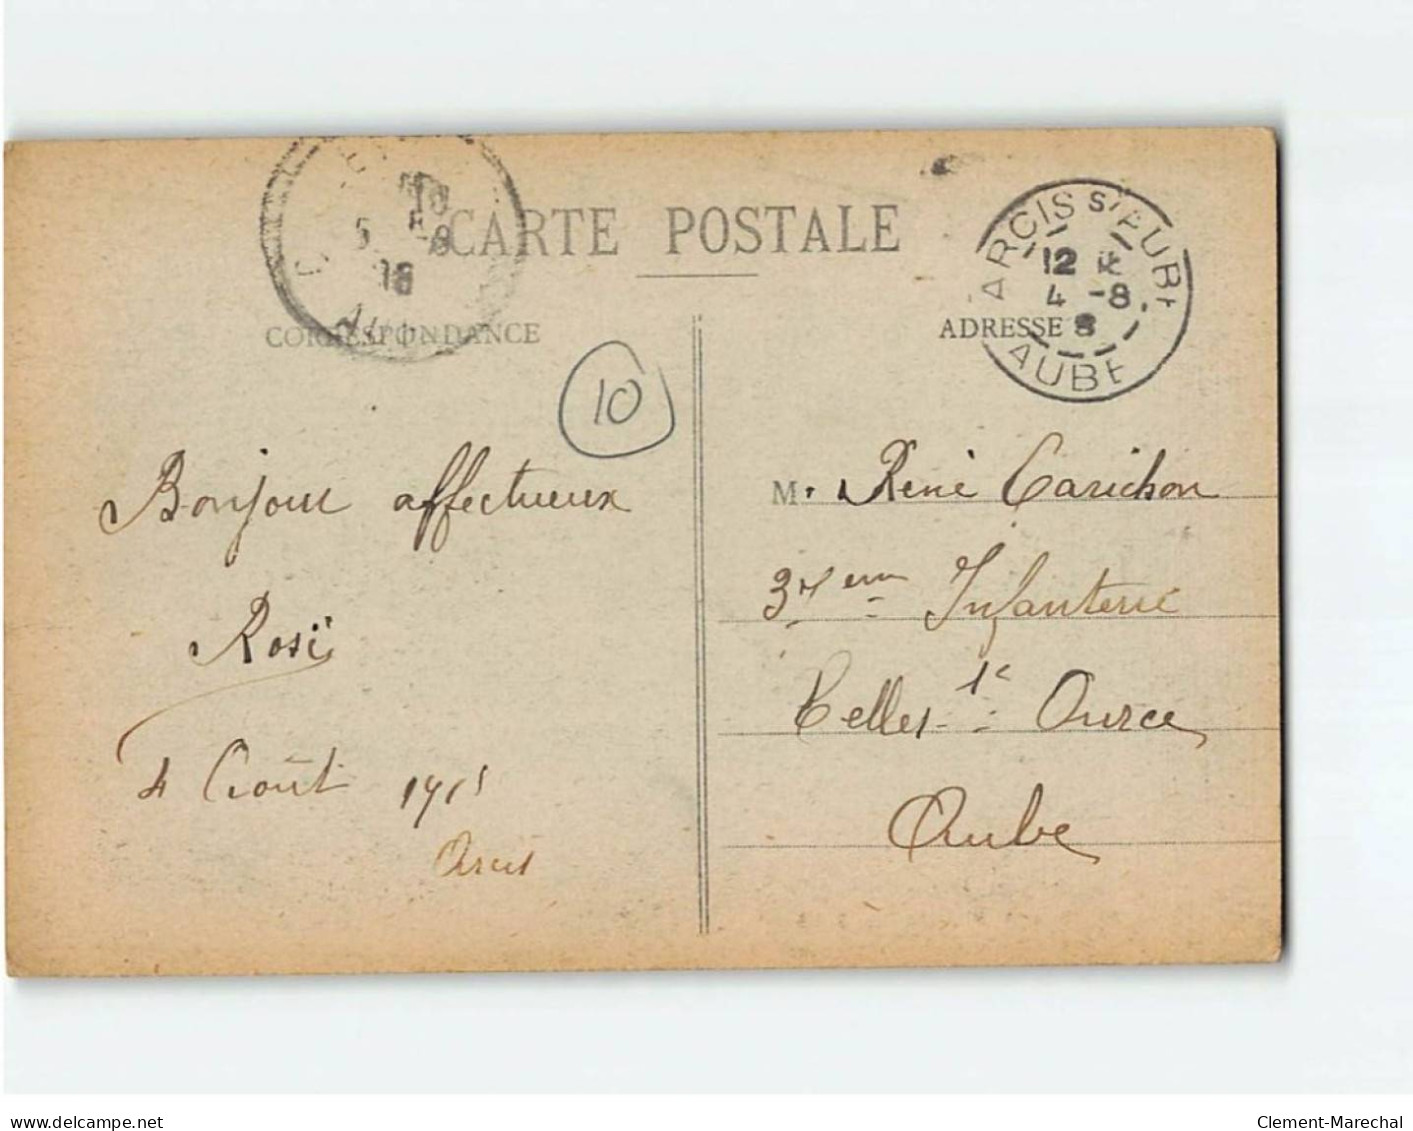 CARTE POSTALE
CORRESPONDANCE
ADRESSE
ARCIS S/AUBE
12
4 -8
AUBE
5 -8
18
10
Bonjour affectueux
Rosi
4 Août
Arcis
M. René Carichon
Infanterie
Celles Ource
Aube
www.delcampe.net
Clement-Marechal